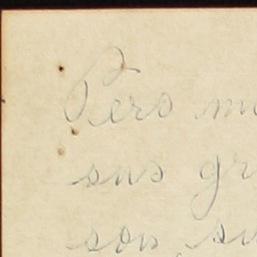 Pero mu
sus gr
son, su